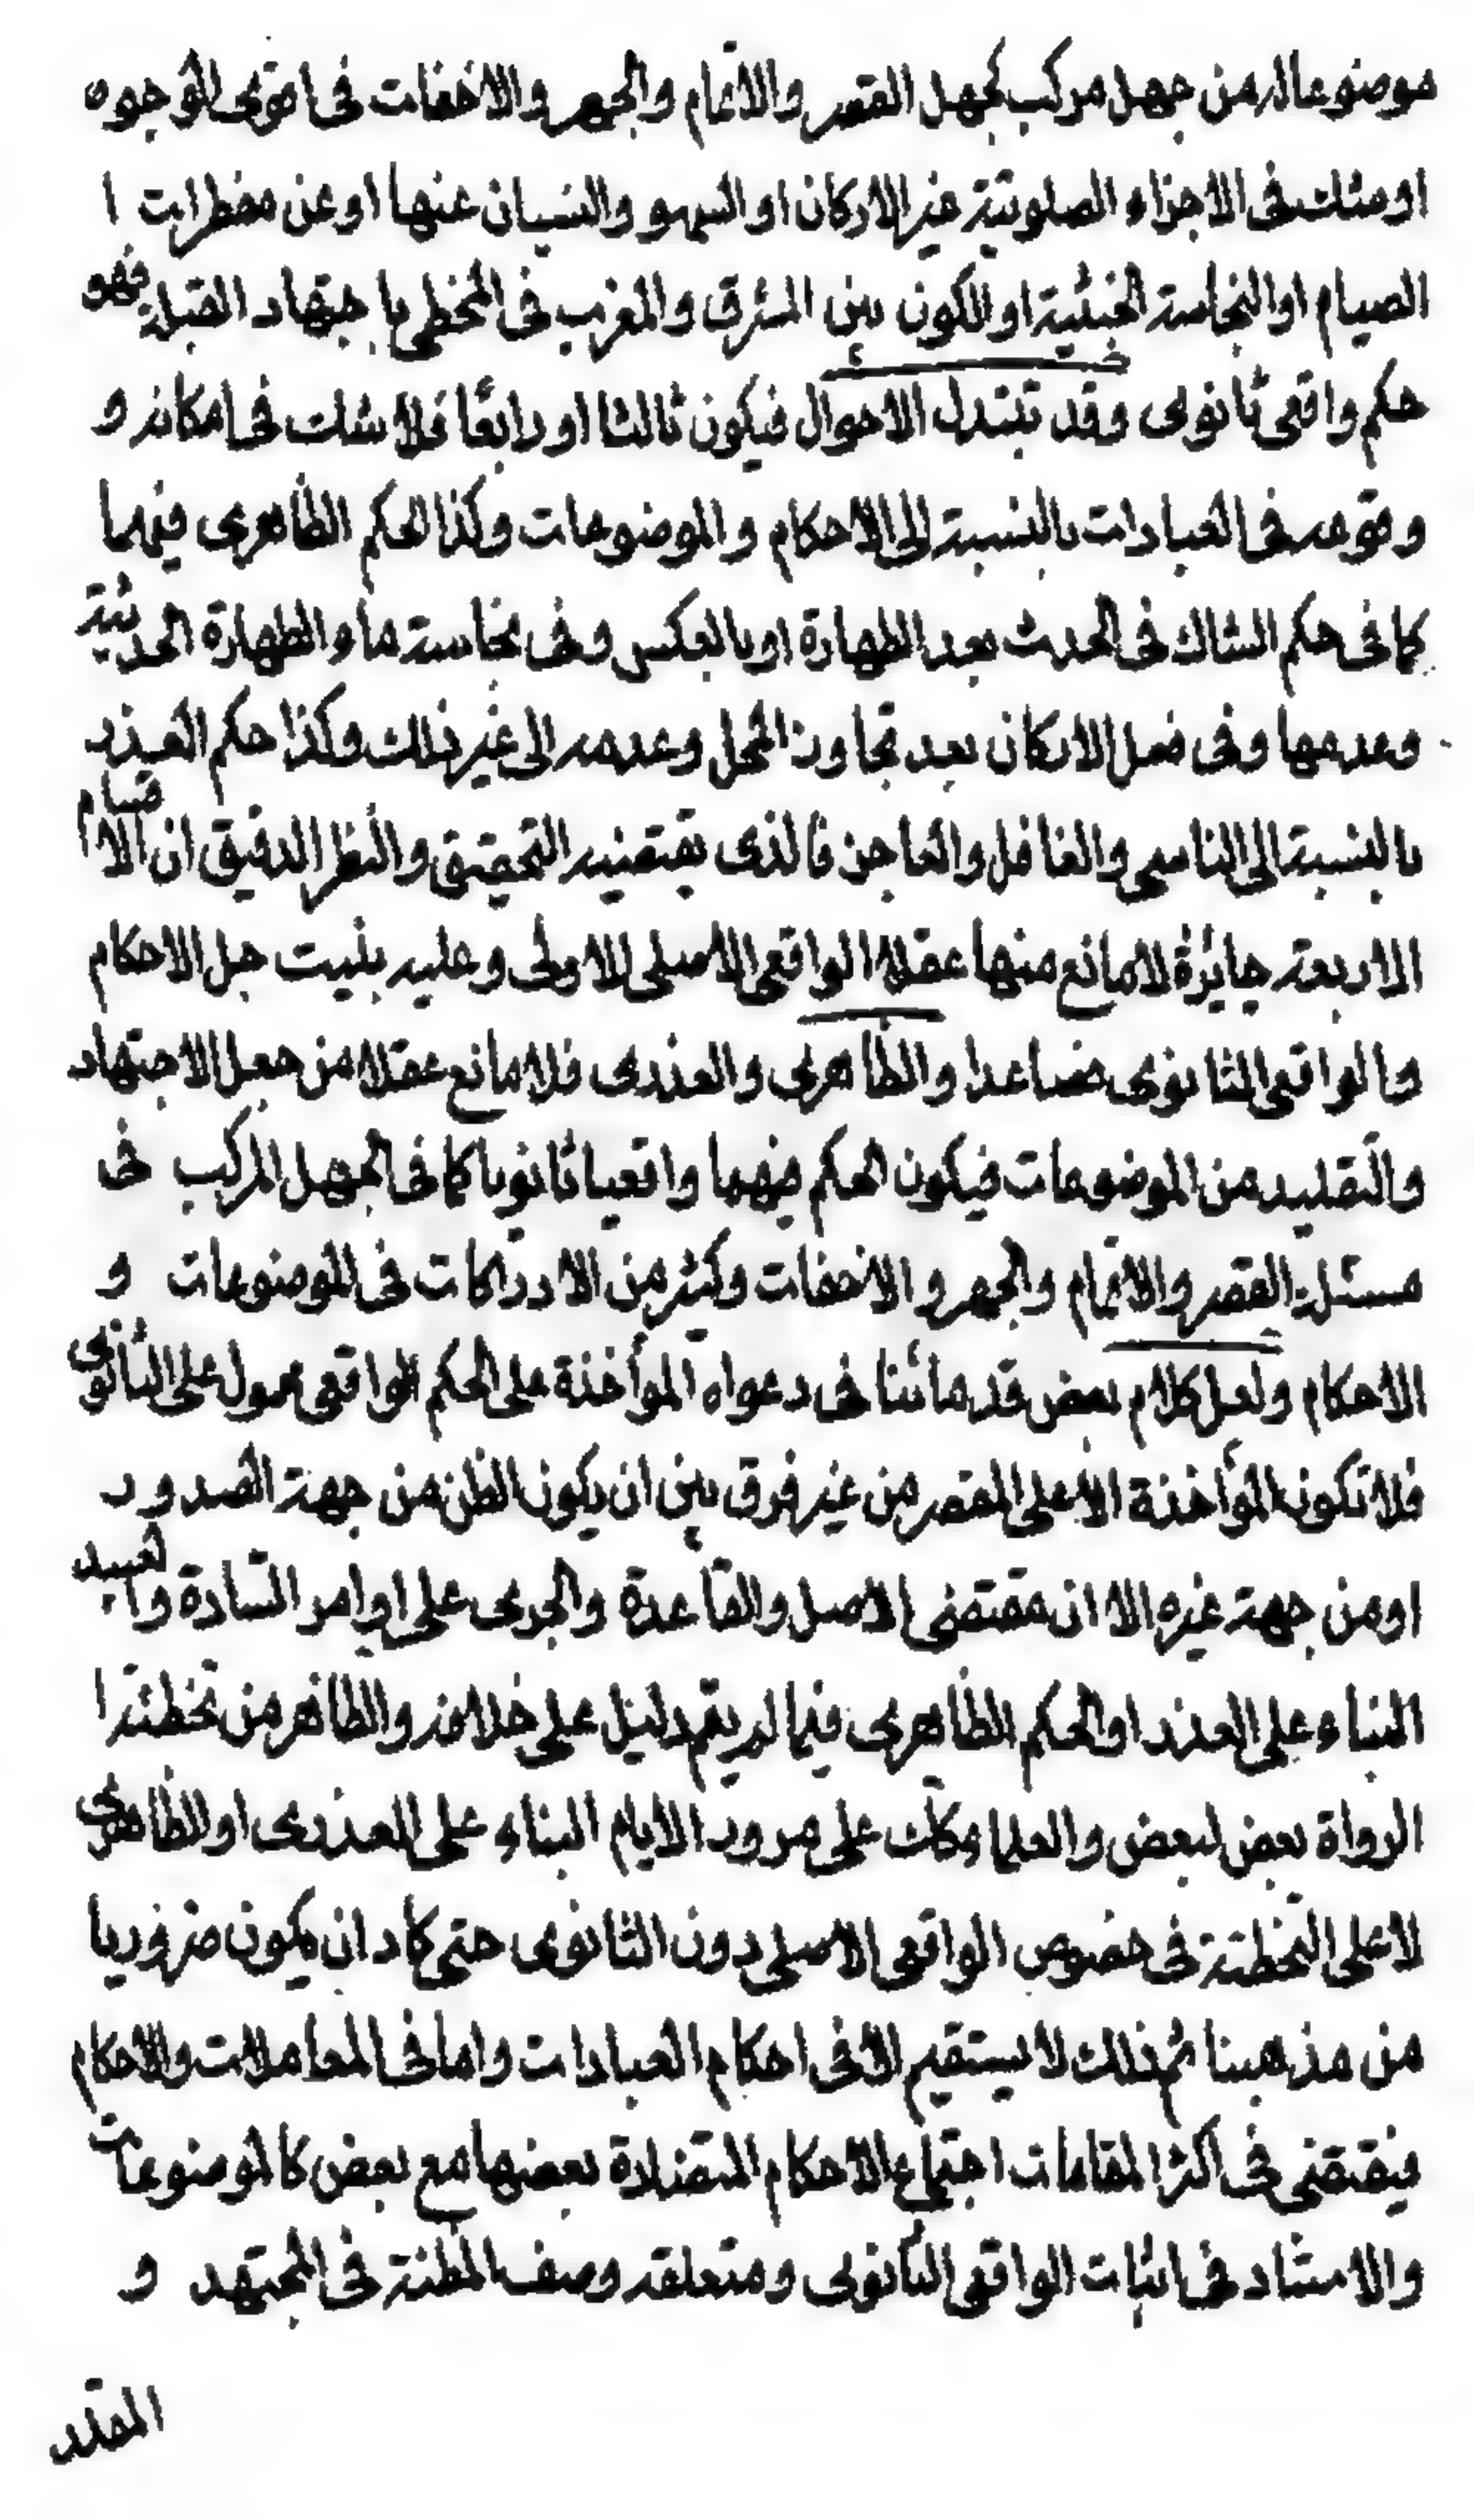 موضوعا له من جهل مركب كجهل القصر والاتمام والجهر والاخفات فى اقوى الوجوه
او مثلث فى الاجزاء الصلوتية غير الاركان او السهو والنسيان عنها او عن مفطرات ا
الصيام او النجاسة الخبثية او الكون بين المشرق والمغرب فى المخطى باجتهاد القبلة فهو
حكم واقعى ثانوى وقد تبتدل الاحوال فيكون ثالثا او رابعًا فلا شك فى امكانه و
وقوعه فى العبادات بالنسبة الى الاحكام والموضوعات وكذا الحكم الظاهرى فيهما
كما فى حكم الشاك فى الحدث بعد الطهارة او بالعكس وفى نجاسة ماء والطهارة الحدثية
وعدمها وفى فعل الاركان بعد تجاوز المحل وعدمه الى غير ذلك وكذا حكم العذر
بالنسبة الى الناسى والغافل والعاجز فالذى يقتضيه التحقيق والنظر الدقيق ان الاقسام
الاربعة جايزة لا مانع منها عقلا الواقعى الاصلى الاولى وعليه بنيت جل الاحكام
والواقعى الثانوى فصاعدا والظاهرى والعذرى فلا مانع عقلا من جعل الاجتهاد
والتقليد من الموضوعات فيكون الحكم فيهما واقعيا ثانويا كما فى الجهل المركب فى
مسئلة القصر والاتمام والجهر والاخفات وكثير من الادراكات فى الموضوعات و
الاحكام ولعل كلام بعض قدمائنا فى دعواه المؤاخذة على الحكم الواقعى محمول على الثانوى
فلا تكون المؤاخذة الا على المقصر من غير فرق بين ان يكون الظن من جهة الصدور
او من جهة غيره الا ان مقتضى الاصل والقاعدة والجرى على اوامر السادة والعبيد
البناء على العذر او الحكم الظاهرى فيما لم يقم دليل على خلافه والظاهر من تخطئة ا
الرواة بعض لبعض والعلماء كك على مرور الايام البناء على العذرى او الظاهرى
لا على التخطئة فى خصوص الواقعى الاصلى دون الثانوى حتى كاد ان يكون ضروريا
من مذهبنا ثم ذلك لا يستقيم الا فى احكام العبادات واما فى المعاملات والاحكام
فيقتضى فى اكثر المقامات اجتماع الاحكام المتضادة بعضها مع بعض كالموضوعات
والامتثاد فى اثبات الواقعى الثانوى ومتعلقه وصف المظنة فى المجتهد و